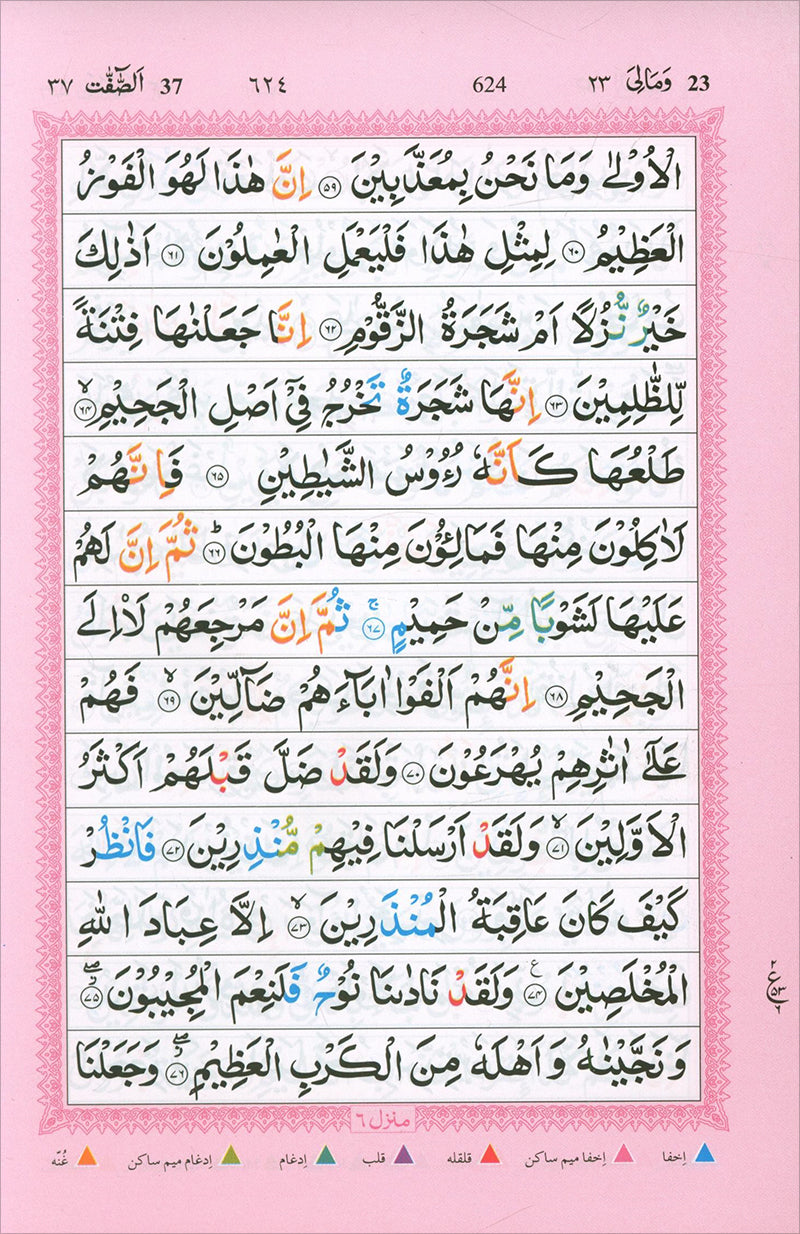 23 وَمَالِیَ ٢٣ 624 ٦٢٤ 37 اَلصّٰٓفّٰت ٣٧
الْاُوْلٰى وَمَا نَحْنُ بِمُعَذَّبِیْنَ ﴿٥٩﴾ اِنَّ هٰذَا لَهُوَ الْفَوْزُ
الْعَظِیْمُ ﴿٦٠﴾ لِمِثْلِ هٰذَا فَلْیَعْمَلِ الْعٰمِلُوْنَ ﴿٦١﴾ اَذٰلِكَ
خَیْرٌ نُّزُلًا اَمْ شَجَرَةُ الزَّقُّوْمِ ﴿٦٢﴾ اِنَّا جَعَلْنٰهَا فِتْنَةً
لِّلظّٰلِمِیْنَ ﴿٦٣﴾ اِنَّهَا شَجَرَةٌ تَخْرُجُ فِیْۤ اَصْلِ الْجَحِیْمِ ۙ ﴿٦٤﴾
طَلْعُهَا كَاَنَّهٗ رُءُوْسُ الشَّیٰطِیْنِ ﴿٦٥﴾ فَاِنَّهُمْ
لَاٰكِلُوْنَ مِنْهَا فَمَالِـُٔوْنَ مِنْهَا الْبُطُوْنَ ؕ ﴿٦٦﴾ ثُمَّ اِنَّ لَهُمْ
عَلَیْهَا لَشَوْبًا مِّنْ حَمِیْمٍ ۚ ﴿٦٧﴾ ثُمَّ اِنَّ مَرْجِعَهُمْ لَاۡاِلَى
الْجَحِیْمِ ﴿٦٨﴾ اِنَّهُمْ اَلْفَوْا اٰبَآءَهُمْ ضَآلِّیْنَ ۙ ﴿٦٩﴾ فَهُمْ
عَلٰۤى اٰثٰرِهِمْ یُهْرَعُوْنَ ﴿٧٠﴾ وَلَقَدْ ضَلَّ قَبْلَهُمْ اَكْثَرُ
الْاَوَّلِیْنَ ۙ ﴿٧١﴾ وَلَقَدْ اَرْسَلْنَا فِیْهِمْ مُّنْذِرِیْنَ ﴿٧٢﴾ فَانْظُرْ
كَیْفَ كَانَ عَاقِبَةُ الْمُنْذَرِیْنَ ۙ ﴿٧٣﴾ اِلَّا عِبَادَ اللّٰهِ
الْمُخْلَصِیْنَ ﴿٧٤﴾ ع وَلَقَدْ نَادٰىنَا نُوْحٌ فَلَنِعْمَ الْمُجِیْبُوْنَ ۖ ﴿٧٥﴾
٢ ع ٥٣ ٦
وَنَجَّیْنٰهُ وَاَهْلَهٗ مِنَ الْكَرْبِ الْعَظِیْمِ ۖ ﴿٧٦﴾ وَجَعَلْنَا
منزل ٦
اِخفا اِخفا میم ساکن قلقله قلب اِدغام اِدغام میم ساکن غُنّه